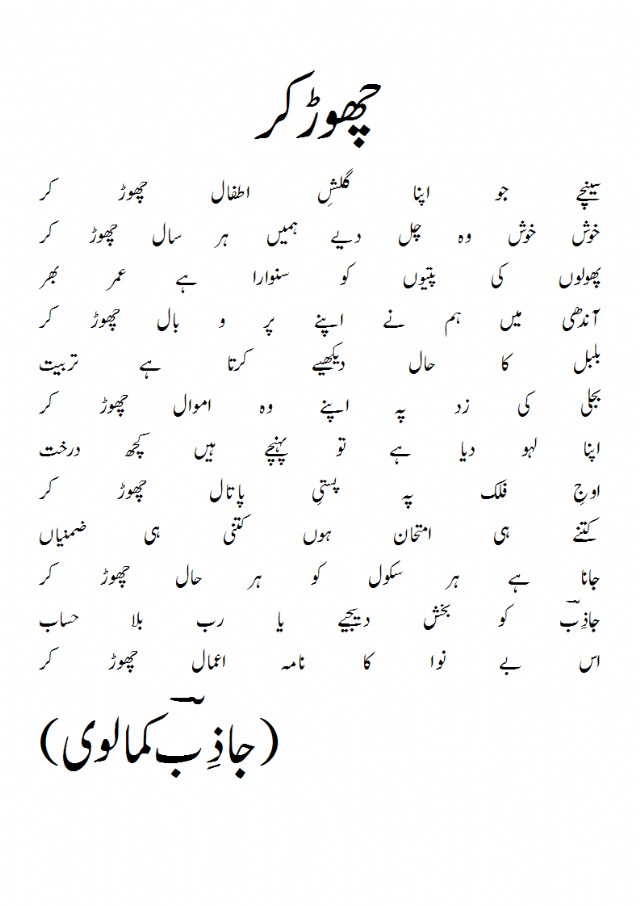 چھوڑ کر
سینچے جو اپنا گلشنِ اطفال چھوڑ کر
خوش خوش وہ چل دیے ہمیں ہر سال چھوڑ کر
پھولوں کی پتیوں کو سنوارا ہے عمر بھر
آندھی میں ہم نے اپنے پر و بال چھوڑ کر
بلبل کا حال دیکھیے کرتا ہے تربیت
بجلی کی زد پہ اپنے وہ اموال چھوڑ کر
اپنا لہو دیا ہے تو پہنچے ہیں کچھ درخت
اوجِ فلک پہ پستیِ پاتال چھوڑ کر
کتنے ہی امتحان ہوں کتنی ہی ضمنیاں
جانا ہے ہر سکول کو ہر حال چھوڑ کر
جاذِبؔ کو بخش دیجیے یا رب بلا حساب
اس بے نوا کا نامہ اعمال چھوڑ کر
(جاذِبؔ کمالوی)